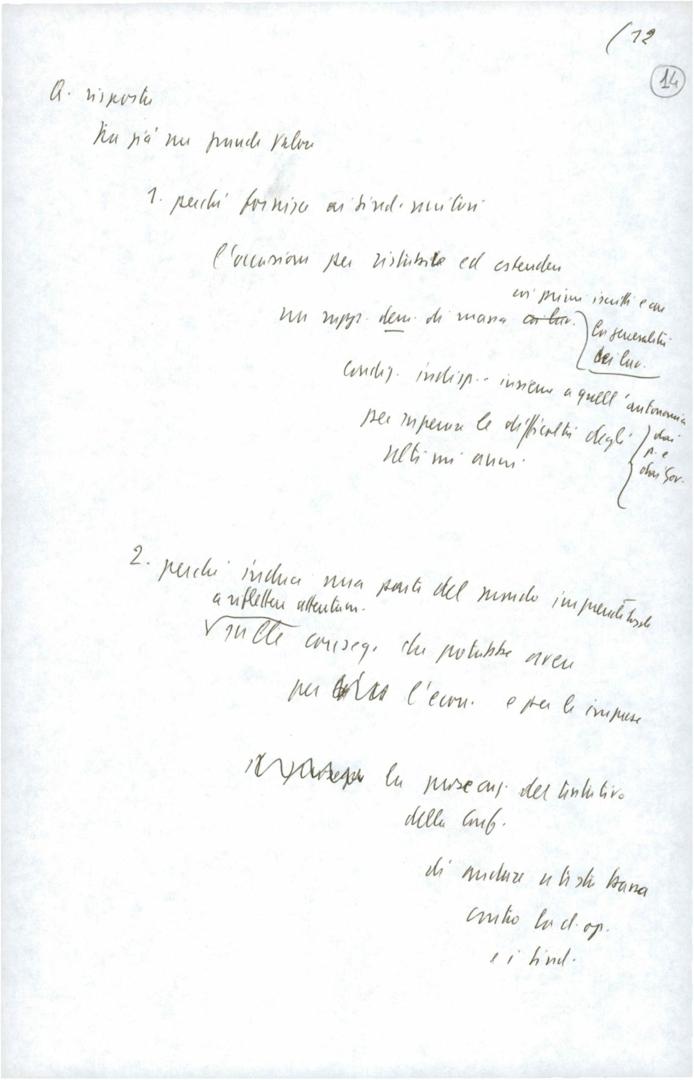 (12
14
Q. risposta
ha già un grande valore
1. perché fornisce ai sind. unitari
l'occasione per ristabilire ed estendere
un rapp. dem. di massa con lav.
coi propri iscritti e con
la generalità
dei lav.
condiz. indisp. insieme a quell'autonomia
dai
p. e
dai Gov.
per superare le difficoltà degli
ultimi anni
2. perché induce una parte del mondo imprenditoriale
a riflettere attentam.
sulle conseg. che potrebbe avere
per l'econ. e per le imprese
la prosecuz. del tentativo
della Conf.
di andare a testa bassa
contro la cl. op.
e i sind.